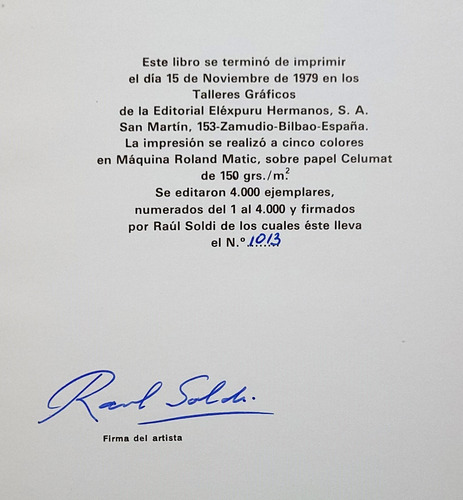 Este libro se terminó de imprimir
el día 15 de Noviembre de 1979 en los
Talleres Gráficos
de la Editorial Eléxpuru Hermanos, S. A.
San Martín, 153-Zamudio-Bilbao-España.
La impresión se realizó a cinco colores
en Máquina Roland Matic, sobre papel Celumat
de 150 grs./m.²
Se editaron 4.000 ejemplares,
numerados del 1 al 4.000 y firmados
por Raúl Soldi de los cuales éste lleva
el N.º 1013
Raul Soldi.
Firma del artista